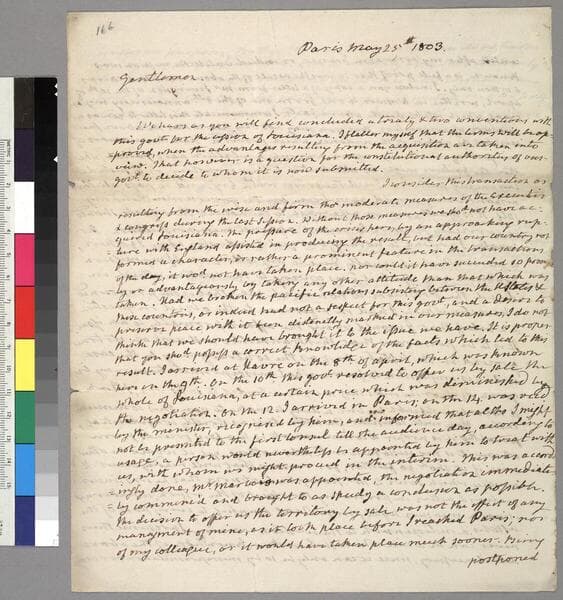 166
Paris May 25th 1803.
Gentlemen
We have as you will find concluded a treaty & two conventions with
this govt. for the cession of Louisiana. I flatter myself that the terms will be ap-
=proved, when the advantages resulting from the acquisition are taken into
view. That however is a question for the constitutional authority of our
govt. to decide to whom it is now submitted.
I consider this transaction as
resulting from the wise and firm tho' moderate measures of the Executive
& congress during the last Session. Without those measures we shod. not have ac-
quired Louisiana. The pressure of the crisis here, by an approaching rup-
ture with England assisted in producing the result, but had our country not
formed a character, or rather a prominent feature in the transactions
of the day, it wod. not have taken place. nor could it have succeeded so prompt-
ly or advantageously by taking any other attitude than that which was
taken. Had we broken the pacific relations subsisting between the UStates &
these countries, or indeed had not a respect for this govt., and a desire to
preserve peace with it been distinctly marked in our measures, I do not
think that we should have brought it to the issue we have. It is proper
that you shod. possess a correct knowledge of the facts which led to this
result. I arrived at Havre on the 8th of april, which was known
here on the 9th. On the 10th this govt. resolved to offer us by sale the
whole of Louisiana, at a certain price which was diminished by
the negotiation. On the 12. I arrived in Paris; on the 14. was recd.
by the minister, recognised by him, and informed that altho I might
not be presented to the first consul till the audience day, according to
usage, a person would nevertheless be appointed by him to treat with
us, with whom we might proceed in the interim. This was accord-
ingly done, Mr Marbois was appointed, the negotiation immediate
=ly commenc'd and brought to as speedy a conclusion as possible.
The decision to offer us the territory by sale was not the effect of any
managment of mine, as it took place before I reached Paris; nor
of my colleague, or it would have taken place much sooner. Being
postponed